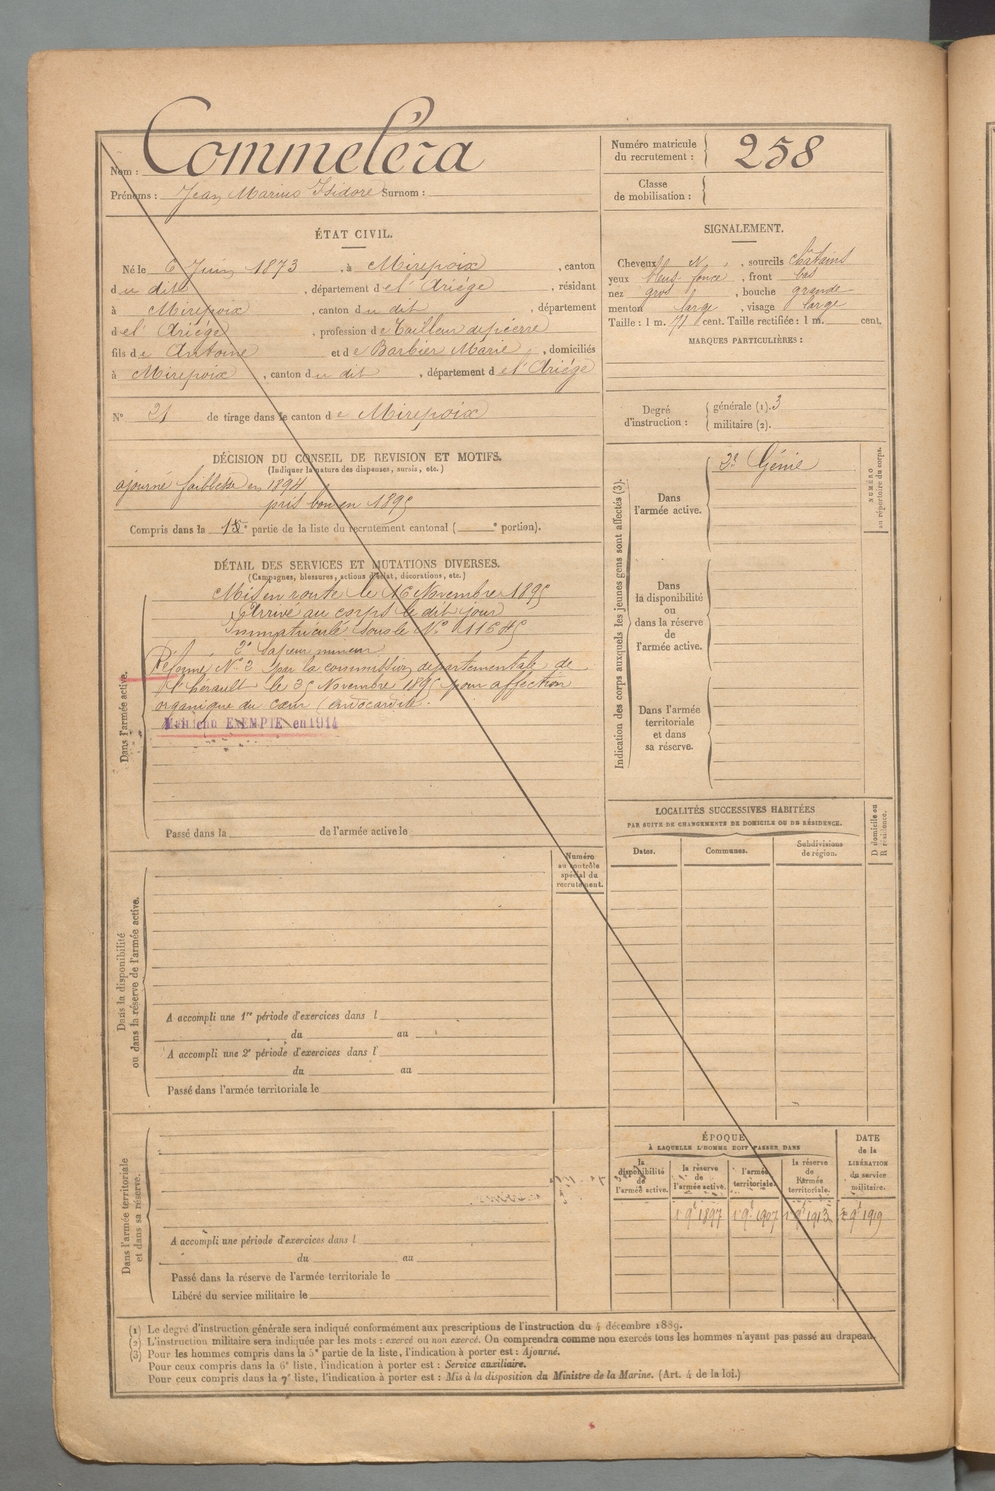 Nom : Commelèra
Prénoms : Jean Marius Isidore Surnom :
Numéro matricule du recrutement : 258
Classe de mobilisation :
ÉTAT CIVIL.
Né le 6 Juin 1873, à Mirepoix, canton
du dit, département de l'Ariège, résidant
à Mirepoix, canton du dit, département
de l'Ariège, profession de Tailleur de pierre
fils de Antoine et de Barbier Marie, domiciliés
à Mirepoix, canton du dit, département de l'Ariège
N° 21 de tirage dans le canton de Mirepoix
SIGNALEMENT.
Cheveux et N., sourcils châtains
yeux bleus foncé, front bas
nez gros, bouche grande
menton large, visage large
Taille : 1 m. 71 cent. Taille rectifiée : 1 m. cent.
MARQUES PARTICULIÈRES :
Degré d'instruction : générale (1). 3
militaire (2).
DÉCISION DU CONSEIL DE REVISION ET MOTIFS.
(Indiquer la nature des dispenses, sursis, etc.)
ajourné faiblesse en 1894
pris bon en 1895
Compris dans la 1e partie de la liste du recrutement cantonal ( e portion).
DÉTAIL DES SERVICES ET MUTATIONS DIVERSES.
(Campagnes, blessures, actions d'éclat, décorations, etc.)
Dans l'armée active.
Mis en route le 16 Novembre 1895
Arrivé au corps le dit jour
Immatriculé sous le N° 11645
2e Sapeur mineur
Réformé N° 2 par la commission départementale de
l'Hérault le 25 Novembre 1895 pour affection
organique du cœur (endocardite.
Maintenu EXEMPTÉ en 1914
Passé dans la de l'armée active le
Indication des corps auxquels les jeunes gens sont affectés (3).
Dans l'armée active.
2e Génie
NUMÉRO au répertoire du corps.
Dans la disponibilité ou dans la réserve de l'armée active.
Dans l'armée territoriale et dans sa réserve.
LOCALITÉS SUCCESSIVES HABITÉES
PAR SUITE DE CHANGEMENTS DE DOMICILE OU DE RÉSIDENCE.
Dates.
Communes.
Subdivisions de région.
D domicile ou R résidence.
Numéro au contrôle spécial du recrutement.
Dans la disponibilité ou dans la réserve de l'armée active.
A accompli une 1re période d'exercices dans l
du au
A accompli une 2e période d'exercices dans l'
du au
Passé dans l'armée territoriale le
Dans l'armée territoriale et dans sa réserve.
A accompli une période d'exercices dans l
du au
Passé dans la réserve de l'armée territoriale le
Libéré du service militaire le
ÉPOQUE
À LAQUELLE L'HOMME DOIT PASSER DANS
la disponibilité de l'armée active.
la réserve de l'armée active.
l'armée territoriale.
la réserve de l'armée territoriale.
DATE de la LIBÉRATION du service militaire.
1 9e 1897
1 9e 1907
1 9e 1913
1 9e 1919
(1) Le degré d'instruction générale sera indiqué conformément aux prescriptions de l'instruction du 4 décembre 1889.
(2) L'instruction militaire sera indiquée par les mots : exercé ou non exercé. On comprendra comme non exercés tous les hommes n'ayant pas passé au drapeau.
(3) Pour les hommes compris dans la 5e partie de la liste, l'indication à porter est : Ajourné.
Pour ceux compris dans la 6e liste, l'indication à porter est : Service auxiliaire.
Pour ceux compris dans la 7e liste, l'indication à porter est : Mis à la disposition du Ministre de la Marine. (Art. 4 de la loi.)